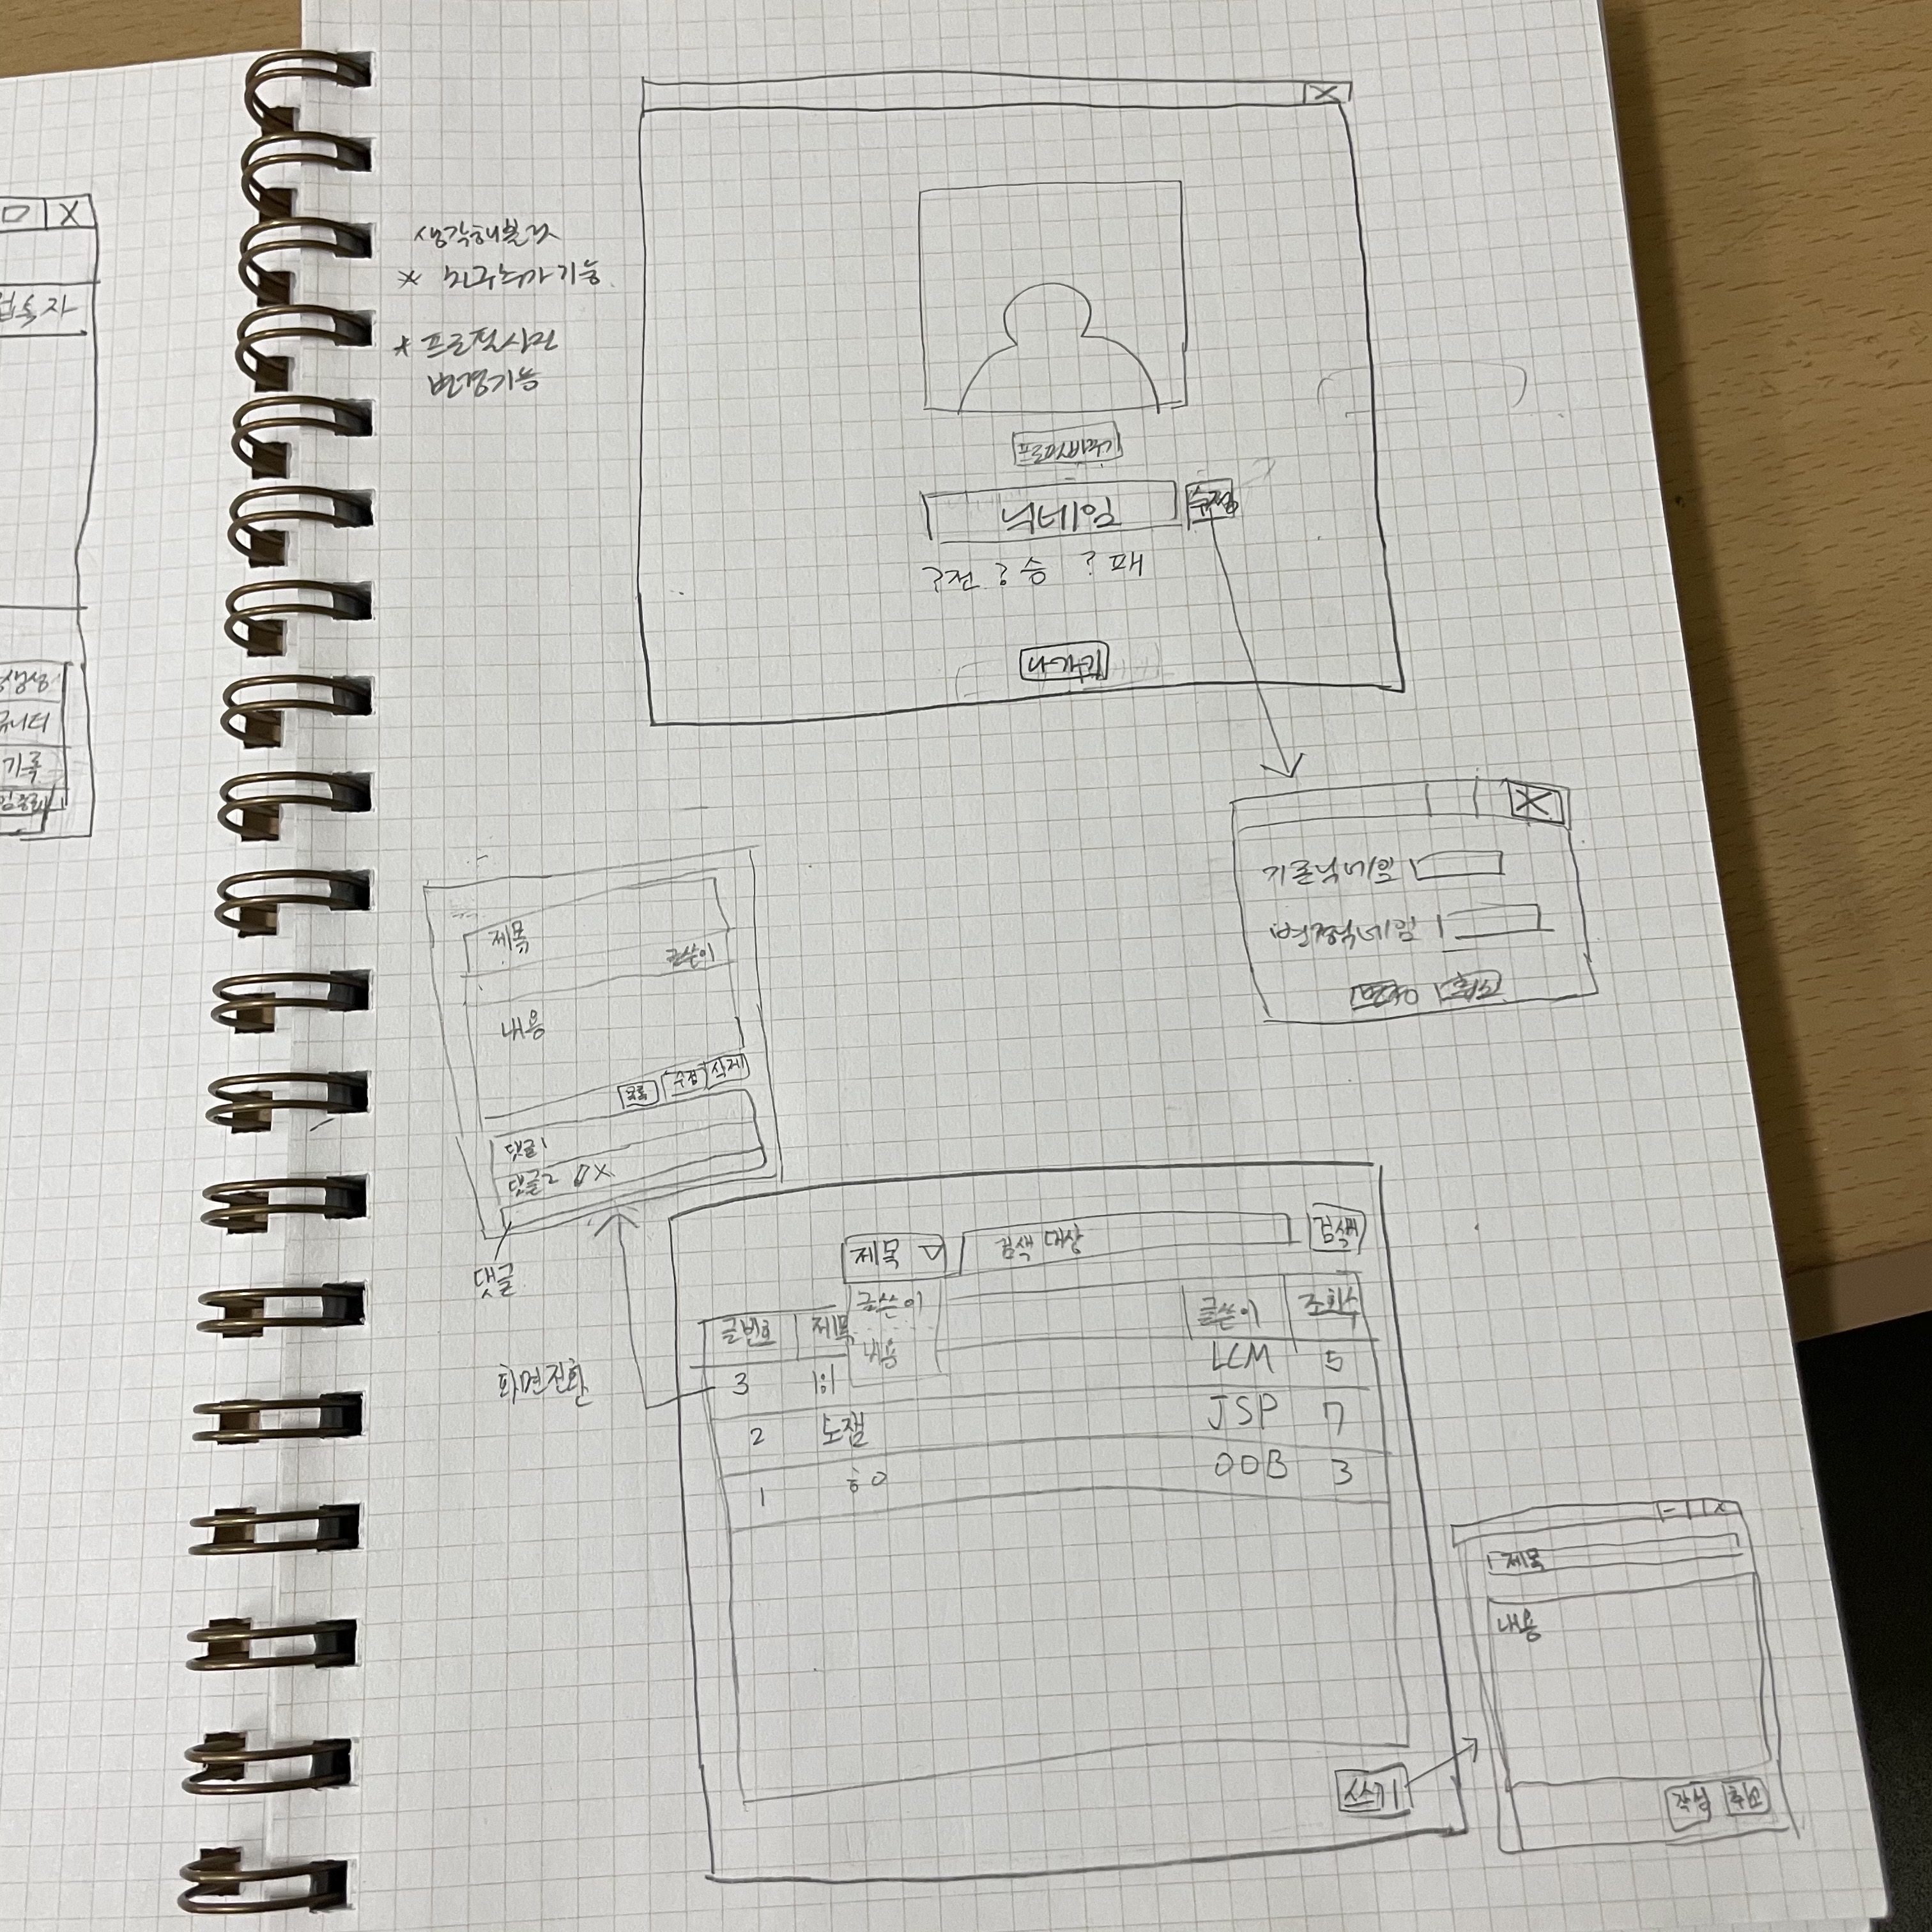 접속자
기록
생각해볼것
* 친구추가 기능
* 프로필사진
변경기능
X
닉네임
수정
?전 ?승 ?패
나가기
X
기존닉네임
변경닉네임
변경 취소
제목
글쓴이
내용
목록 수정 삭제
댓글1
댓글2 X
댓글
화면전환
제목 검색 대상 검색
글쓴이
내용
글번호 제목 글쓴이 조회수
3 1:1 LCM 5
2 노잼 JSP 7
1 OOB 3
쓰기
제목
내용
작성 취소